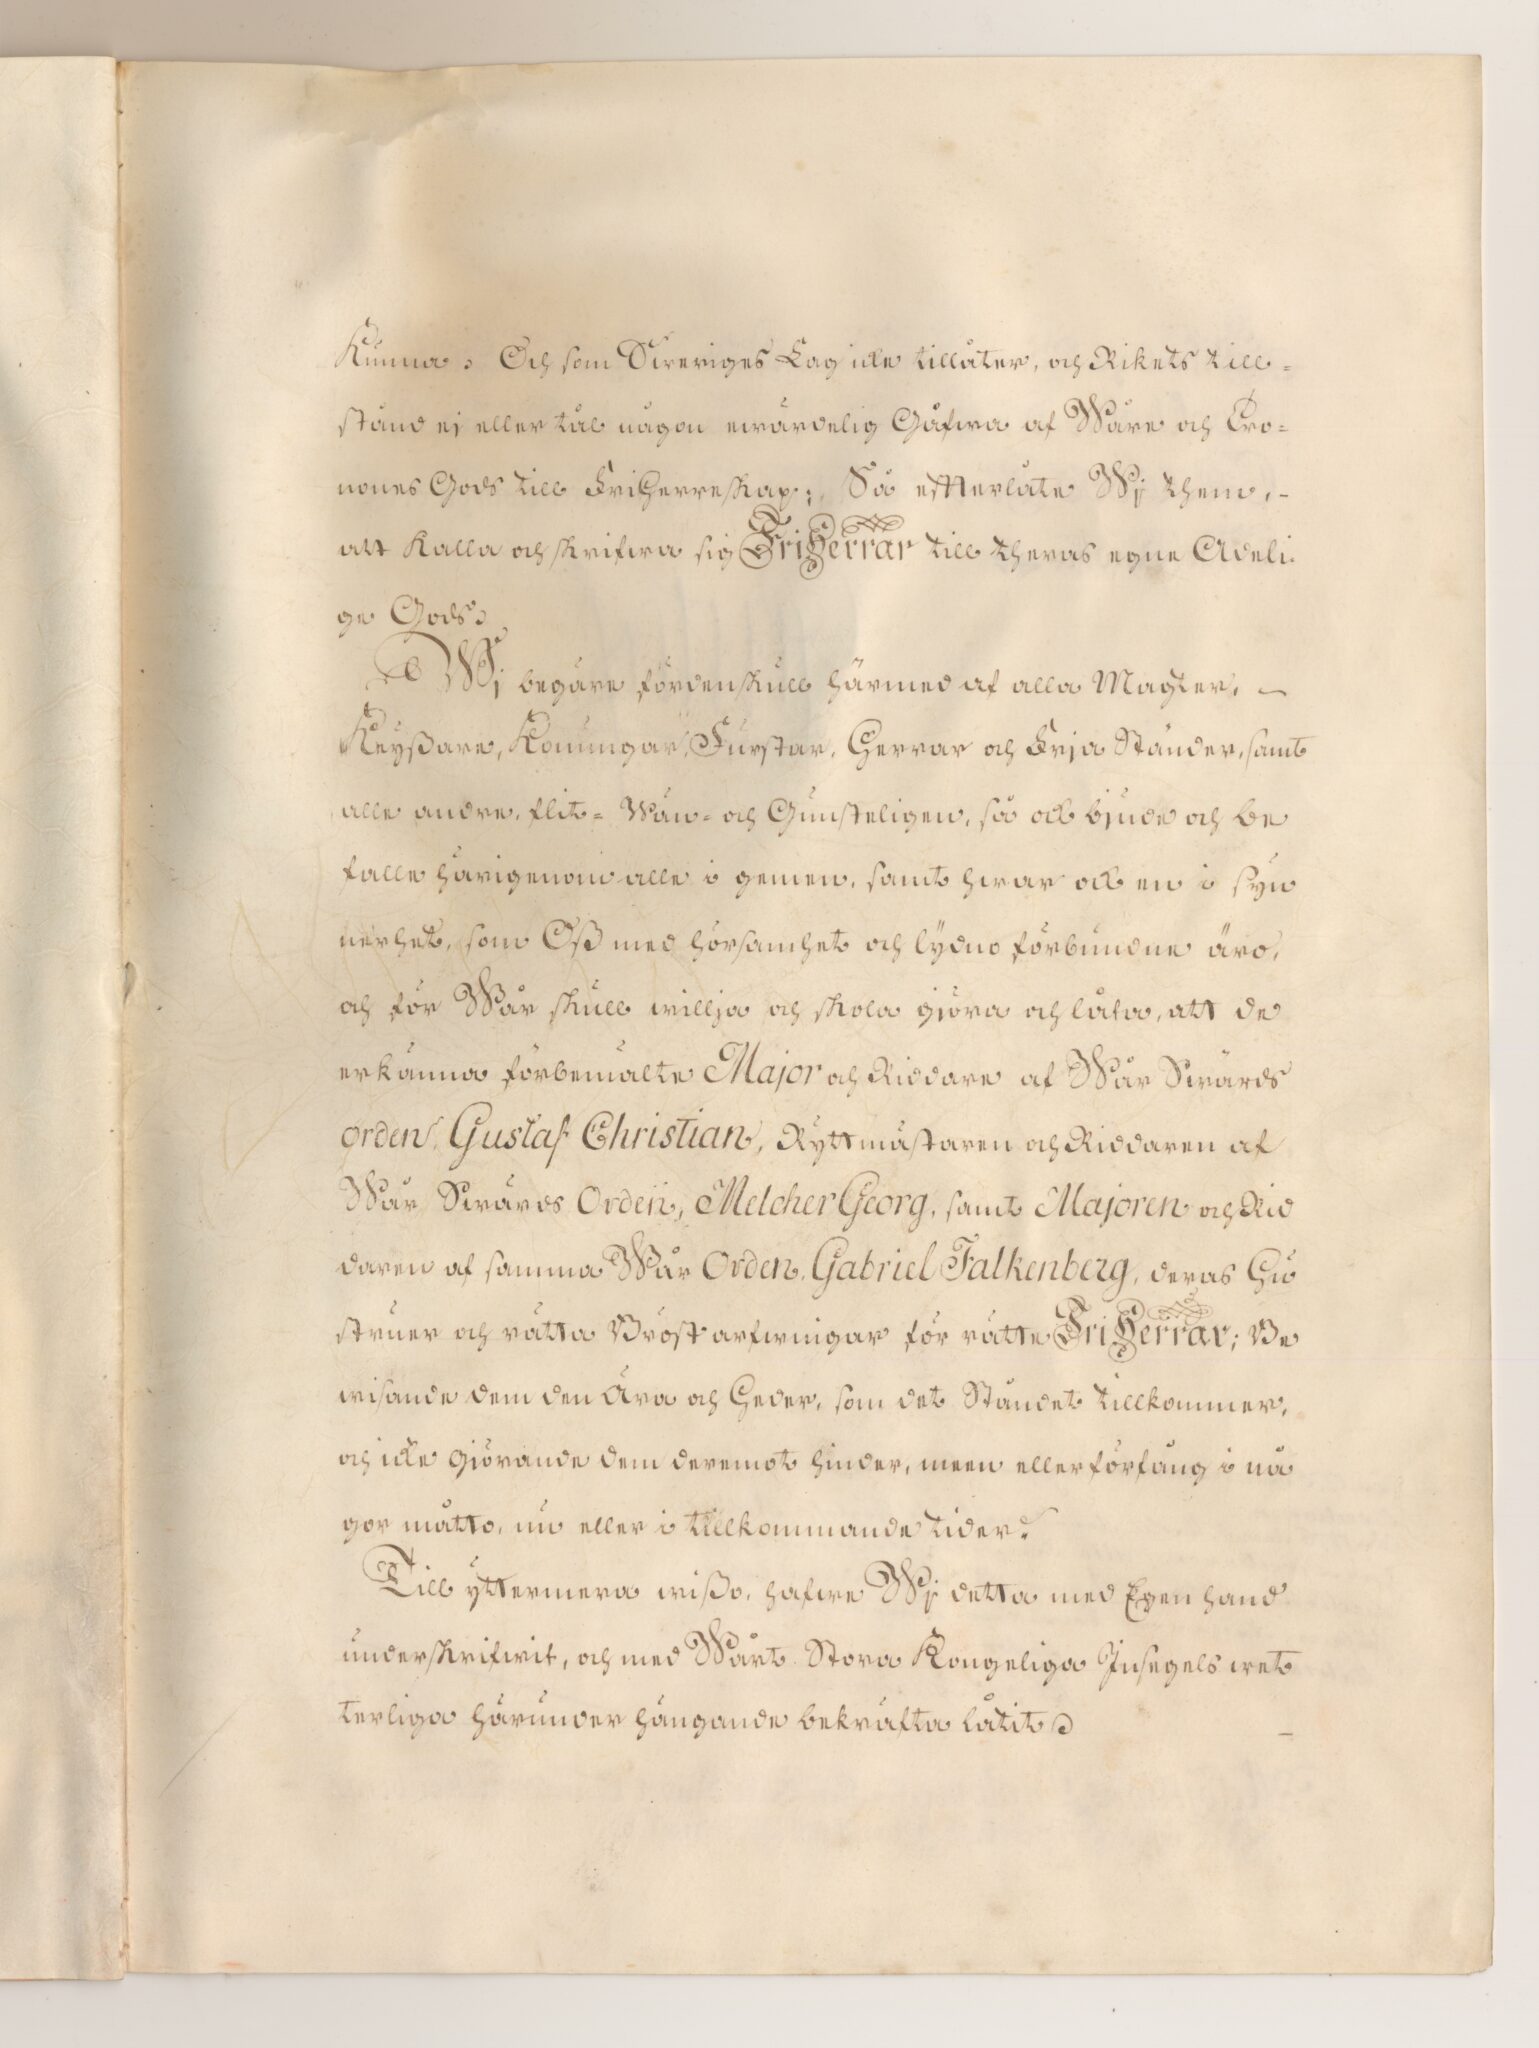 Kunna. Och som Sweriges Lag icke tillåter, och Rikets till-
stånd ej eller tål någon ewärdelig Gåfwa af Wåre och Cro-
nones Gods till Friherreskap; Så effterlåte Wj them,
att Kalla och skrifwa sig FriHerrar till theras egne Adeli-
ge Gods.
Wj begäre fördenskull härmed af alla Magter,
Keyßare, Konungar, Furstar, Herrar och Frja Ständer, samt
alle andre, flit- Wän- och Gunsteligen, så ock bjude och be
falle härigenom alle i gemen, samt hwar ock en i syn
nerhet, som Oß med hörsamhet och lÿdno förbundne äro,
och för Wår skull willja och skola gjöra och låta, att de
erkänna förbemälte Major och Riddare af Wår Swärds
Orden, Gustaf Christian, Ryttmästaren och Riddaren af
Wår Swärds Orden, Melcher Georg, samt Majoren och Rid
daren af samma Wår Orden, Gabriel Falkenberg, deras Hu
struer och rätta Bröst arfwingar för rätte FriHerrar; Be
wisande dem den Ära och Heder, som det Ståndet tillkommer,
och icke giörande dem deremot hinder, meen eller förfång i nå
gor måtto, nu eller i tillkommande tider.
Till ÿttermera wißo, hafwe Wj detta med Egen hand
underskrifwit, och med Wårt Stora Kongeliga Insegels wet
terliga härunder hängande bekräfta låtit